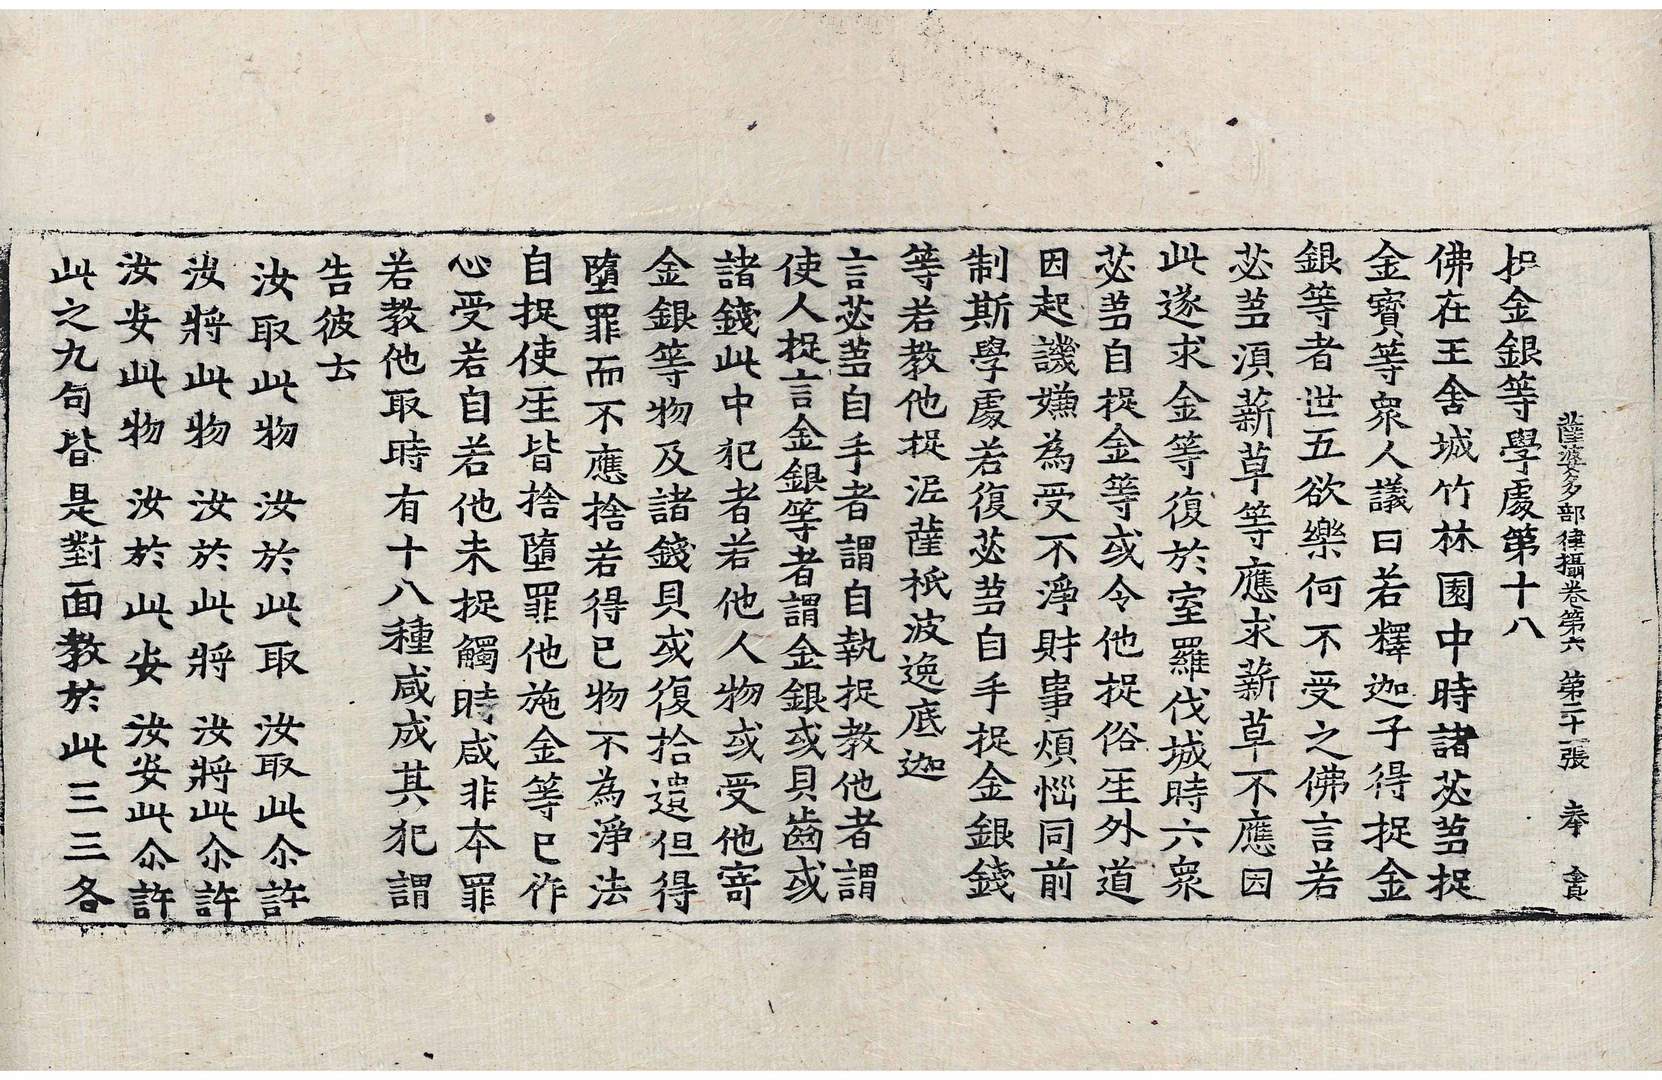 薩婆多部律攝卷第六 第二十一張 奉
捉金銀等學處第十八
佛在王舍城竹林園中時諸苾芻捉
金寶等衆人議曰若釋迦子得捉金
銀等者世五欲樂何不受之佛言若
苾芻湏薪草等應求薪草不應因
此遂求金等復於室羅伐城時六衆
苾芻自捉金等或令他捉俗生外道
因起譏嫌為受不淨財事煩惱同前
制斯學處若復苾芻自手捉金銀錢
等若教他捉泥薩祇波逸底迦
言苾芻自手者謂自執捉教他者謂
使人捉言金銀等者謂金銀或貝齒或
諸錢此中犯者若他人物或受他寄
金銀等物及諸錢貝或復拾遺但得
墮罪而不應捨若得已物不為淨法
自捉使生皆捨墮罪他施金等已作
心受若自若他未捉觸時咸非本罪
若教他取時有十八種咸成其犯謂
告彼云
汝取此物 汝於此取 汝取此尒許
汝將此物 汝於此將 汝將此尒許
汝安此物 汝於此安 汝安此尒許
此之九句皆是對面教於此三三各